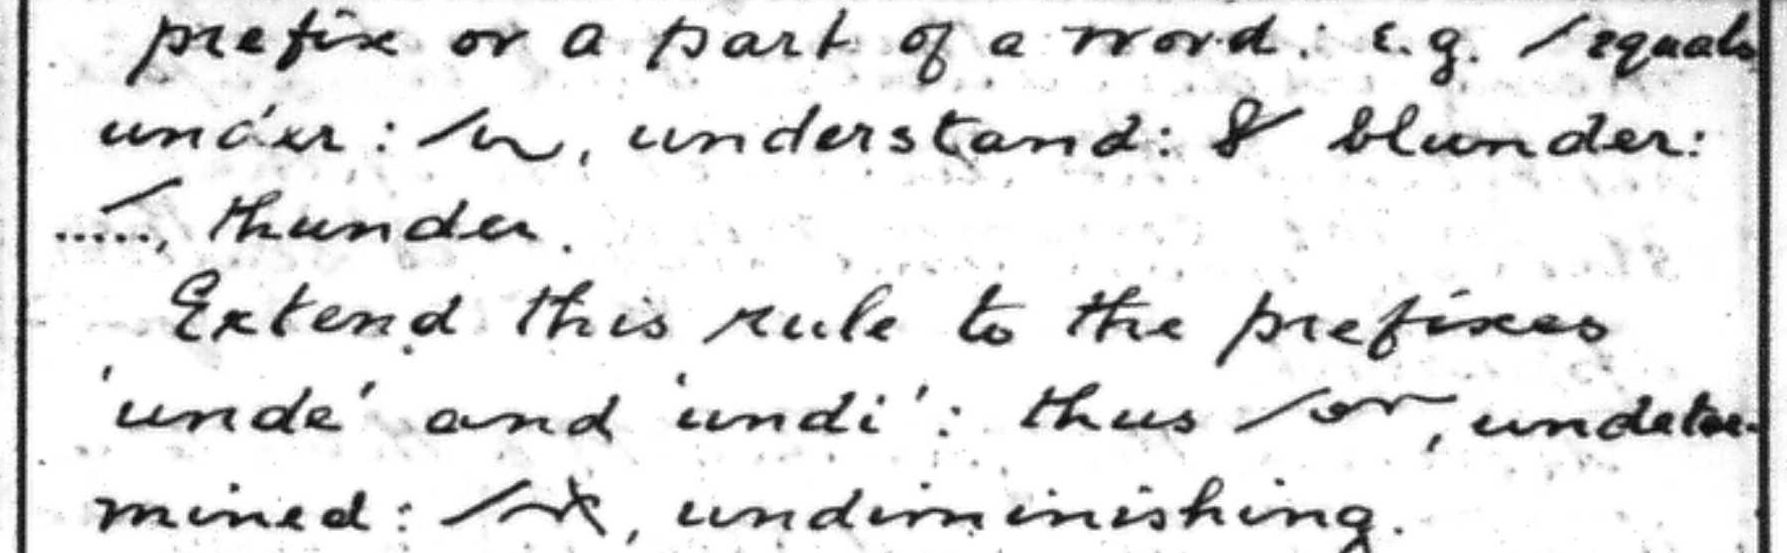 prefix or a part of a word: e.g. / equals
under: , understand: & blunder:
....., thunder.
Extend this rule to the prefixes
'unde' and 'undi': thus , undeter-
mined: , undiminishing.